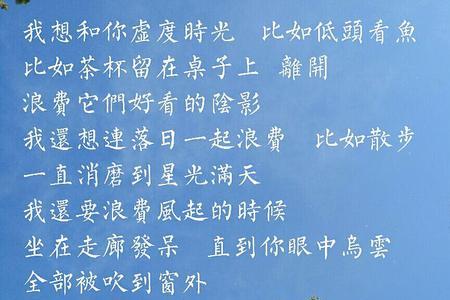 我想和你虛度時光　比如低頭看魚
比如茶杯留在桌子上　離開
浪費它們好看的陰影
我還想連落日一起浪費　比如散步
一直消磨到星光滿天
我還要浪費風起的時候
坐在走廊發呆　直到你眼中烏雲
全部被吹到窗外